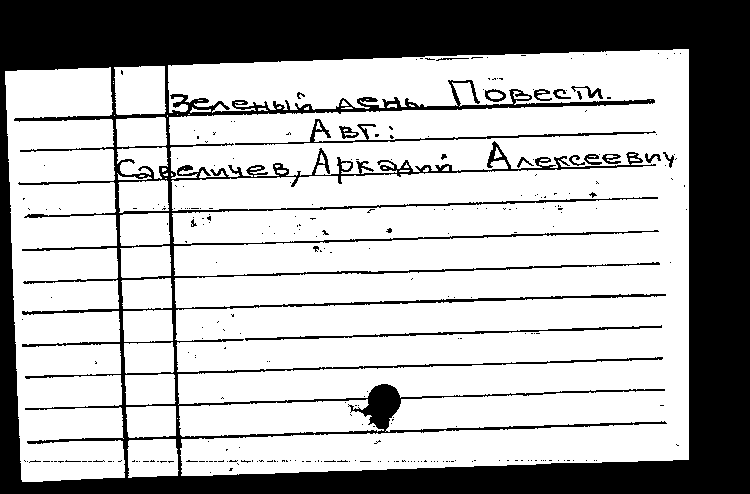 Зеленый день. Повести.
Авт.:
Савеличев, Аркадий Алексеевич